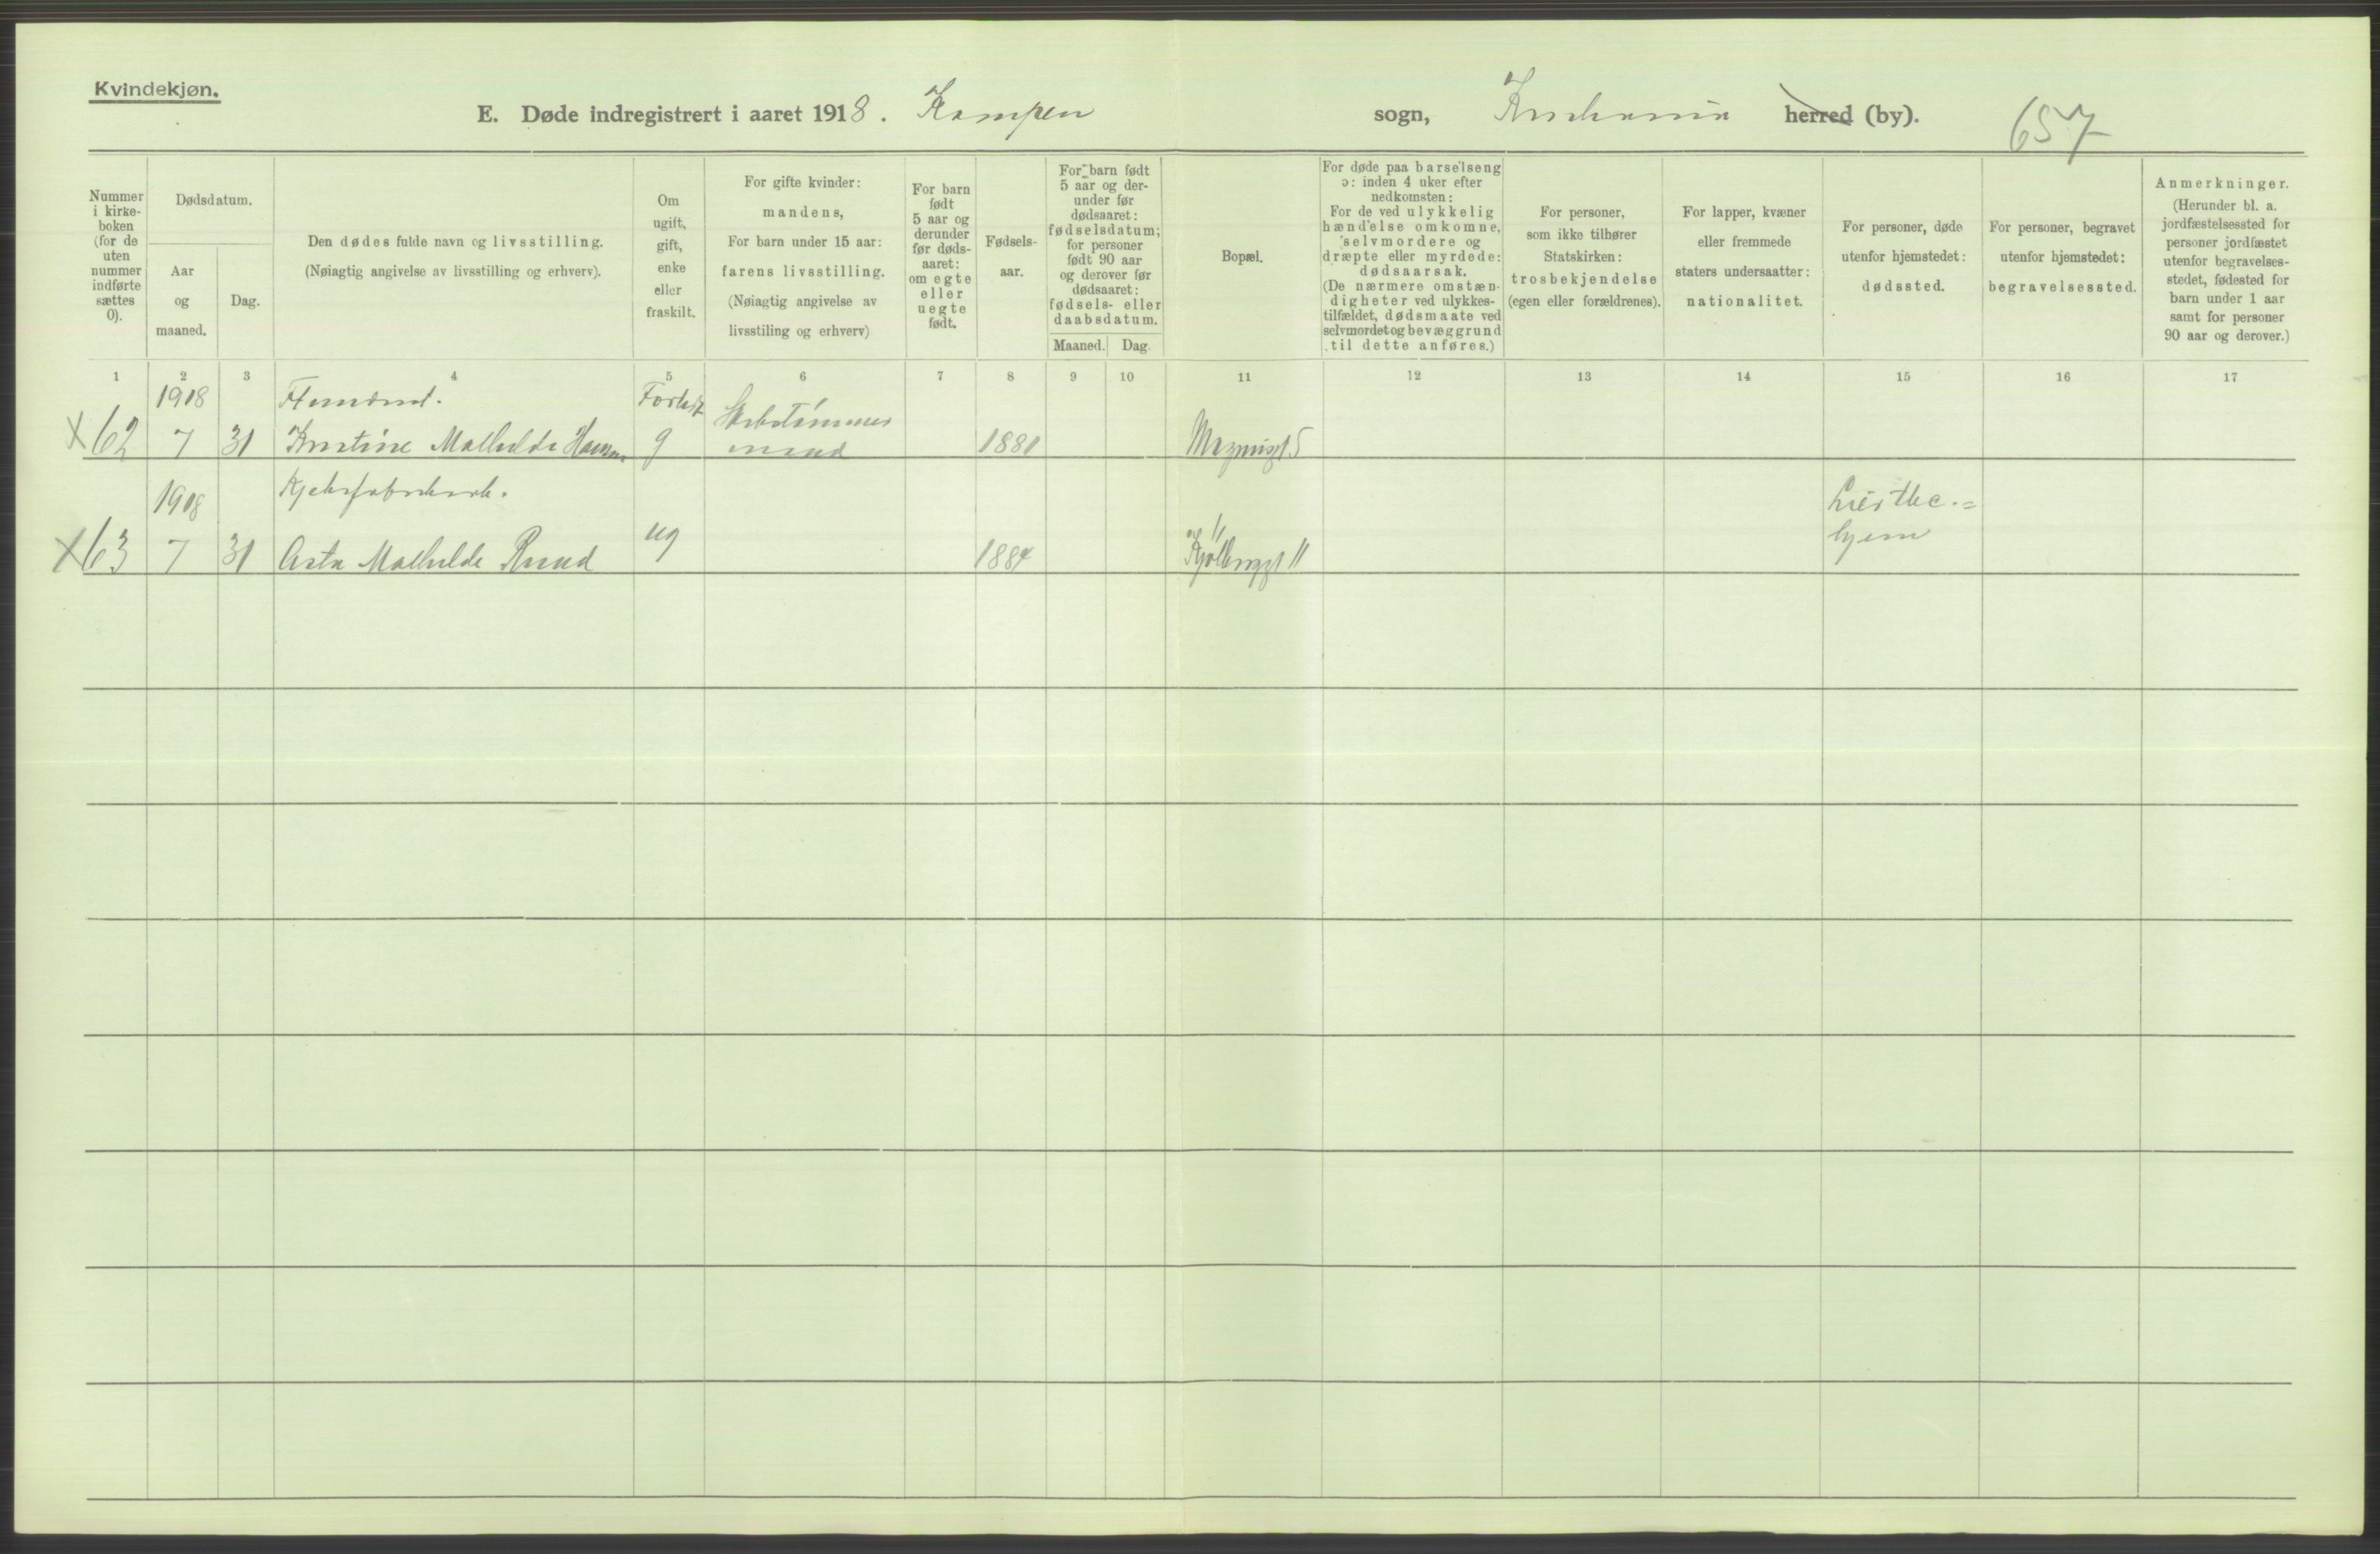 Kvindekjøn.
E. Døde indregistrert i aaret 1918. Kampen sogn, Kristiania herred (by). 657
Nummer i kirke-boken (for de uten nummer indførte sættes 0).
Dødsdatum.
Aar og maaned.
Dag.
Den dødes fulde navn og livsstilling.
(Nøiagtig angivelse av livsstilling og erhverv).
Om ugift, gift, enke eller fraskilt.
For gifte kvinder:
mandens,
For barn under 15 aar:
farens livsstilling.
(Nøiagtig angivelse av
livsstiling og erhverv)
For barn født 5 aar og derunder før døds-aaret: om egte eller uegte født.
Fødsels-aar.
For barn født 5 aar og der-under før dødsaaret: fødselsdatum; for personer født 90 aar og derover før dødsaaret: fødsels- eller daabsdatum.
Maaned. Dag.
Bopæl.
For døde paa barselseng
ɔ: inden 4 uker efter
nedkomsten:
For de ved ulykkelig
hændelse omkomne,
selvmordere og
dræpte eller myrdede:
dødsaarsak.
(De nærmere omstæn-
digheter ved ulykkes-
tilfældet, dødsmaate ved
selvmordet og bevæggrund
til dette anføres.)
For personer,
som ikke tilhører
Statskirken:
trosbekjendelse
(egen eller forældrenes).
For lapper, kvæner
eller fremmede
staters undersaatter:
nationalitet.
For personer, døde
utenfor hjemstedet:
dødssted.
For personer, begravet
utenfor hjemstedet:
begravelsessted.
Anmerkninger.
(Herunder bl. a.
jordfæstelsessted for
personer jordfæstet
utenfor begravelses-
stedet, fødested for
barn under 1 aar
samt for personer
90 aar og derover.)
1 2 3 4 5 6 7 8 9 10 11 12 13 14 15 16 17
1918
X 62 7 31 Kristine Mathilde Hansen g mand 1881 5
1918
X 63 7 31 Asta Mathilde Ruud ug 1884 11
hjem